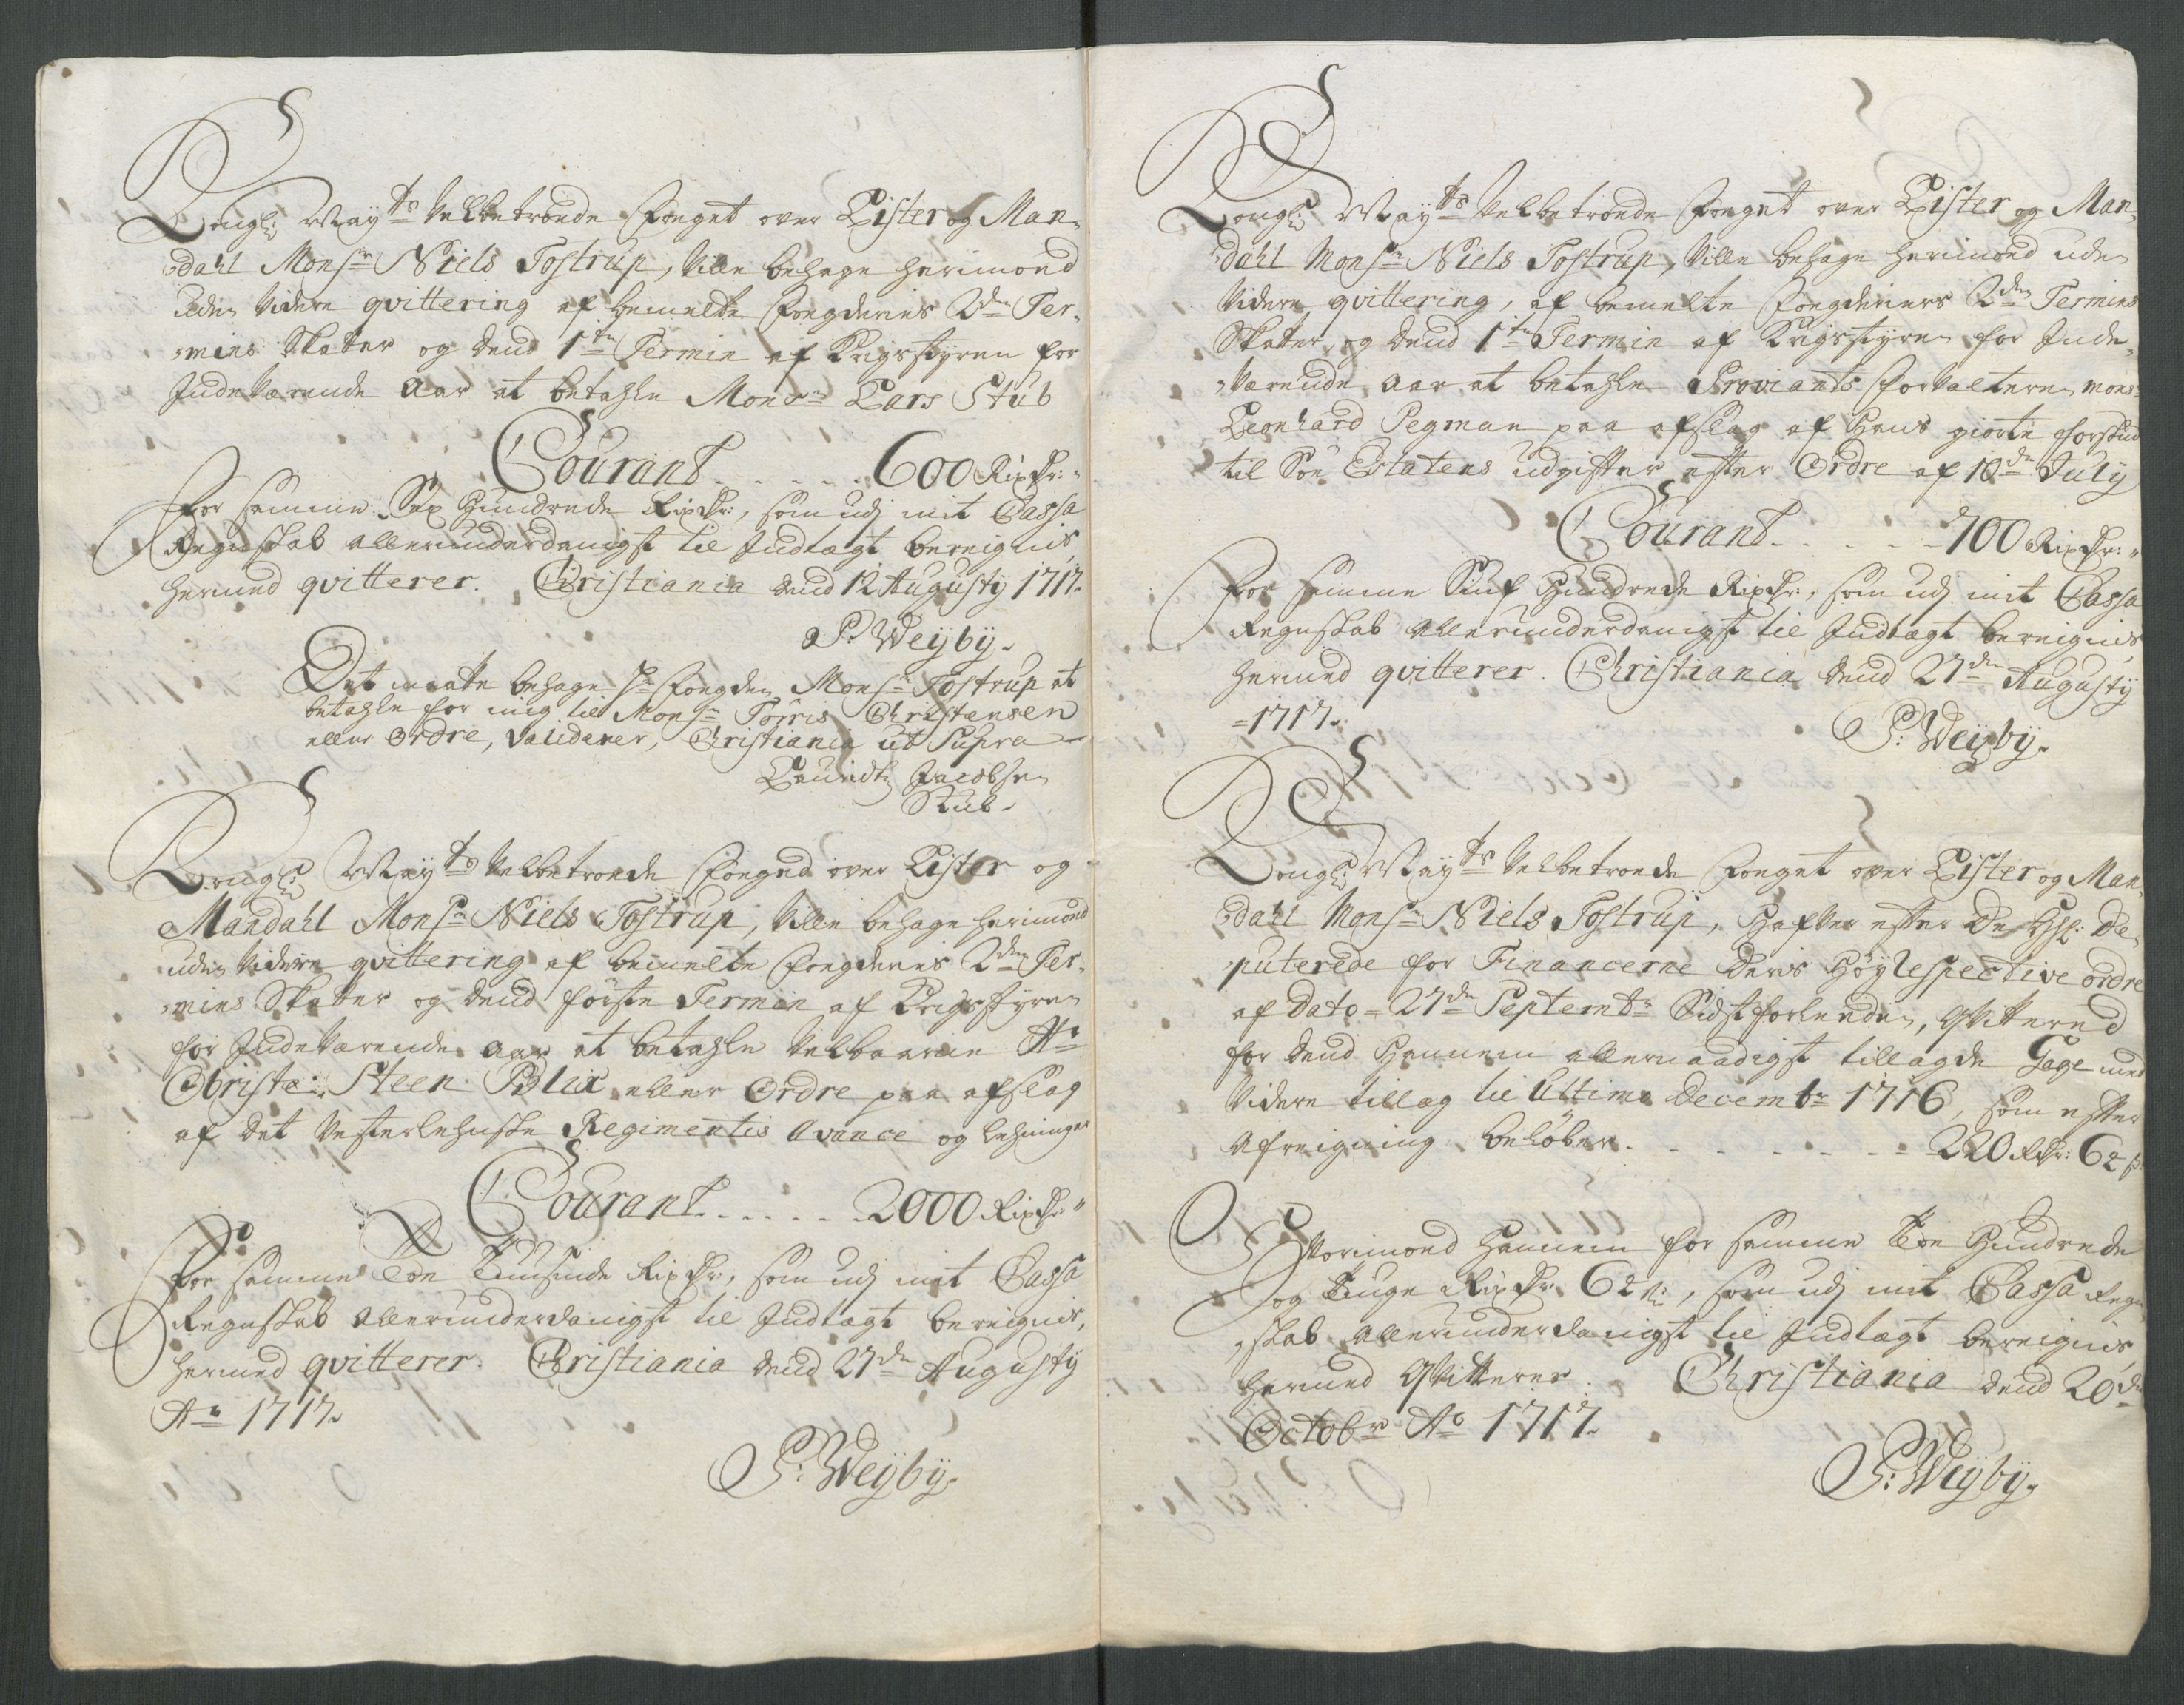 Kongl: May:ts Velbetroede Foeget over Lister og Man-
dahl Monsr Niels Tostrup, ville behage herimoed
uden videre qvittering af bemelte Foegderies 2den Ter-
mins Skatter og dend 1te Termin af Krigsstyren for
Indeværende Aar at betahle Monsr Lars Stub
Courant . . . . . 600 Rixdr:
For samme Sex Hundrede Rixdr:, som udj mit Cassa
Regnskab allerunderdanigst til Indtægt bereignis,
hermed qvitterer. Christiania dend 12 Augustij 1717.
P: Weyby.
Det maatte behage Hr Foegden Monsr Tostrup at
betahle for mig til Monsr Torris Christensen
eller Ordre, validerer, Christiania ut Supra
Lauridtz Jacobsen
Stub.
Kongl: May:ts Velbetroede Foeged over Lister og
Mandahl Monsr Niels Tostrup, ville behage herimoed
uden videre qvittering af bemelte Foegderies 2den Ter-
mins Skatter og dend første Termin af Krigsstyren
for Indeværende Aar at betahle Velbaarne Hr
Obriste: Steen Blix eller Ordre paa afslag
af det Vesterlehnske Regimentis Avance og lehninger
Courant . . . . . 2000 Rixdr:
For samme Toe Tuusinde Rixdr:, som udj mit Cassa
Regnskab allerunderdanigst til Indtægt bereignis,
hermed qvitterer. Christiania dend 27de Augustij
Ao 1717.
P: Weyby.
Kongl: May:ts Velbetroede Foeget over Lister og Man-
dahl Monsr Niels Tostrup, ville behage herimoed uden
videre qvittering, af bemelte Foegderiers 2den Termins
Skatter, og dend 1te Termin af Krigsstyren for Inde-
værende Aar at betahle Proviants Forvalteren Mons:
Leonhard Pegman paa afslag af Hans giorte forskud
til Søe Etatens udgifter efter Ordre af 10de July
Courant . . . . . 700 Rixdr:
For samme Siuf Hundrede Rixdr:, som udj mit Cassa
Regnskab allerunderdanigst til Indtægt bereignis,
hermed qvitterer. Christiania dend 27den Augustij
1717.
P: Weyby.
Kongl: May:ts Velbetroede Foeget over Lister og Man-
dahl Monsr Niels Tostrup, Hafver efter De Hrr: De-
puterede for Financerne Deris Høyrespective ordre
af Dato 27de Septembr Sidstforleeden, qvittered
for dend Hannem allernaadigst tillagde Gage med
videre tillæg til Ultimo Decembr 1716, som efter
Afreigning beløber . . . . . 220 Rdr: 62 s
Hvorimoed Hannem for samme Toe Hundrede
og Tiuge Rixdr: 62 s:, som udj mit Cassa Regn-
skab allerunderdanigst til Indtægt bereignis,
hermed qvitterer. Christiania dend 20de
Octobr Ao 1717.
P: Weyby.